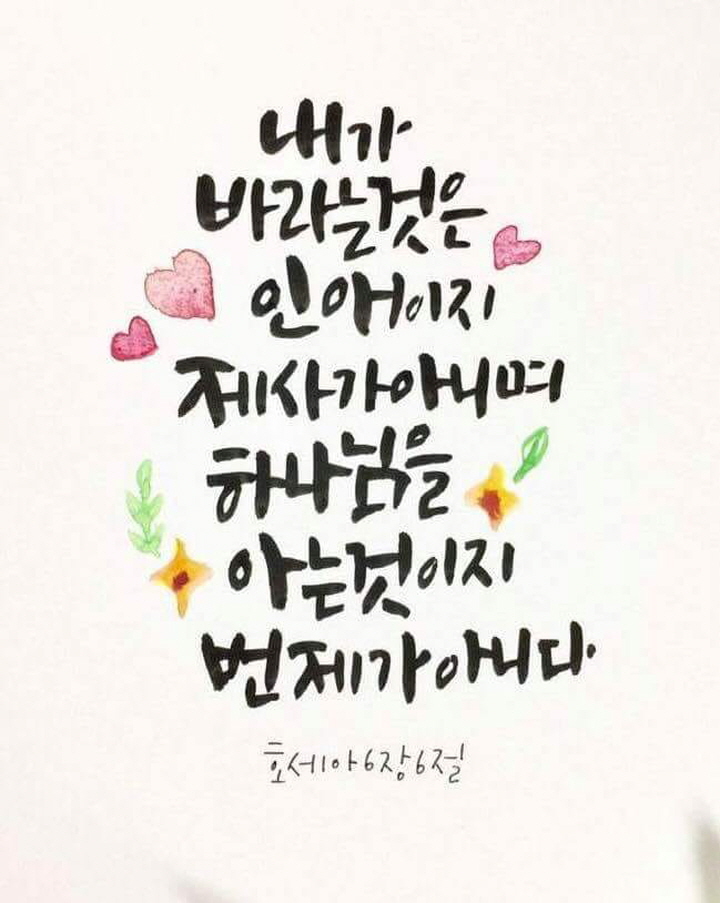 내가
바라는것은
인애이지
제사가아니며
하나님을
아는것이지
번제가아니다.
호세아6장6절